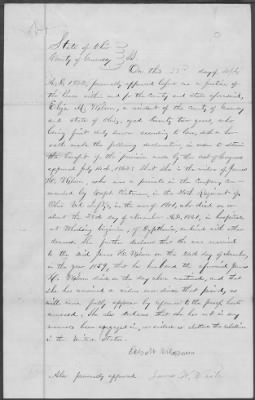 State of Ohio
County of Guernsey } SS
On this 22d day of July
A.D. 1862, personally appeared before me a Justice of
the Peace within and for the County and State aforesaid,
Eliza M. Nelson, a resident of the County of Guernsey
and State of Ohio, aged twenty two years, who
being first duly sworn according to law, doth on her
oath make the following declaration, in order to obtain
the benefit of the provision made by the act of Congress
approved July 14th, 1862: That she is the widow of James
W. Nelson, who was a private in the Company commanded
by Capt. in the Regiment of
Ohio Vol. Inf'ty, in the war of 1861, who died on or
about the day of November A.D. 1861, in hospital
at Wheeling Virginia, of combined with other
disease. She further declares that she was married
to the said James W. Nelson on the day of
in the year 1859, that her husband the aforesaid James
W. Nelson died on the day above mentioned, and that
she has remained a widow ever since that period, as
will more fully appear by reference to the proof hereto
annexed. She also declares that she has not in any
manner been engaged in, or aided or abetted the rebellion
in the United States.
Eliza M. Nelson
Also personally appeared James W.